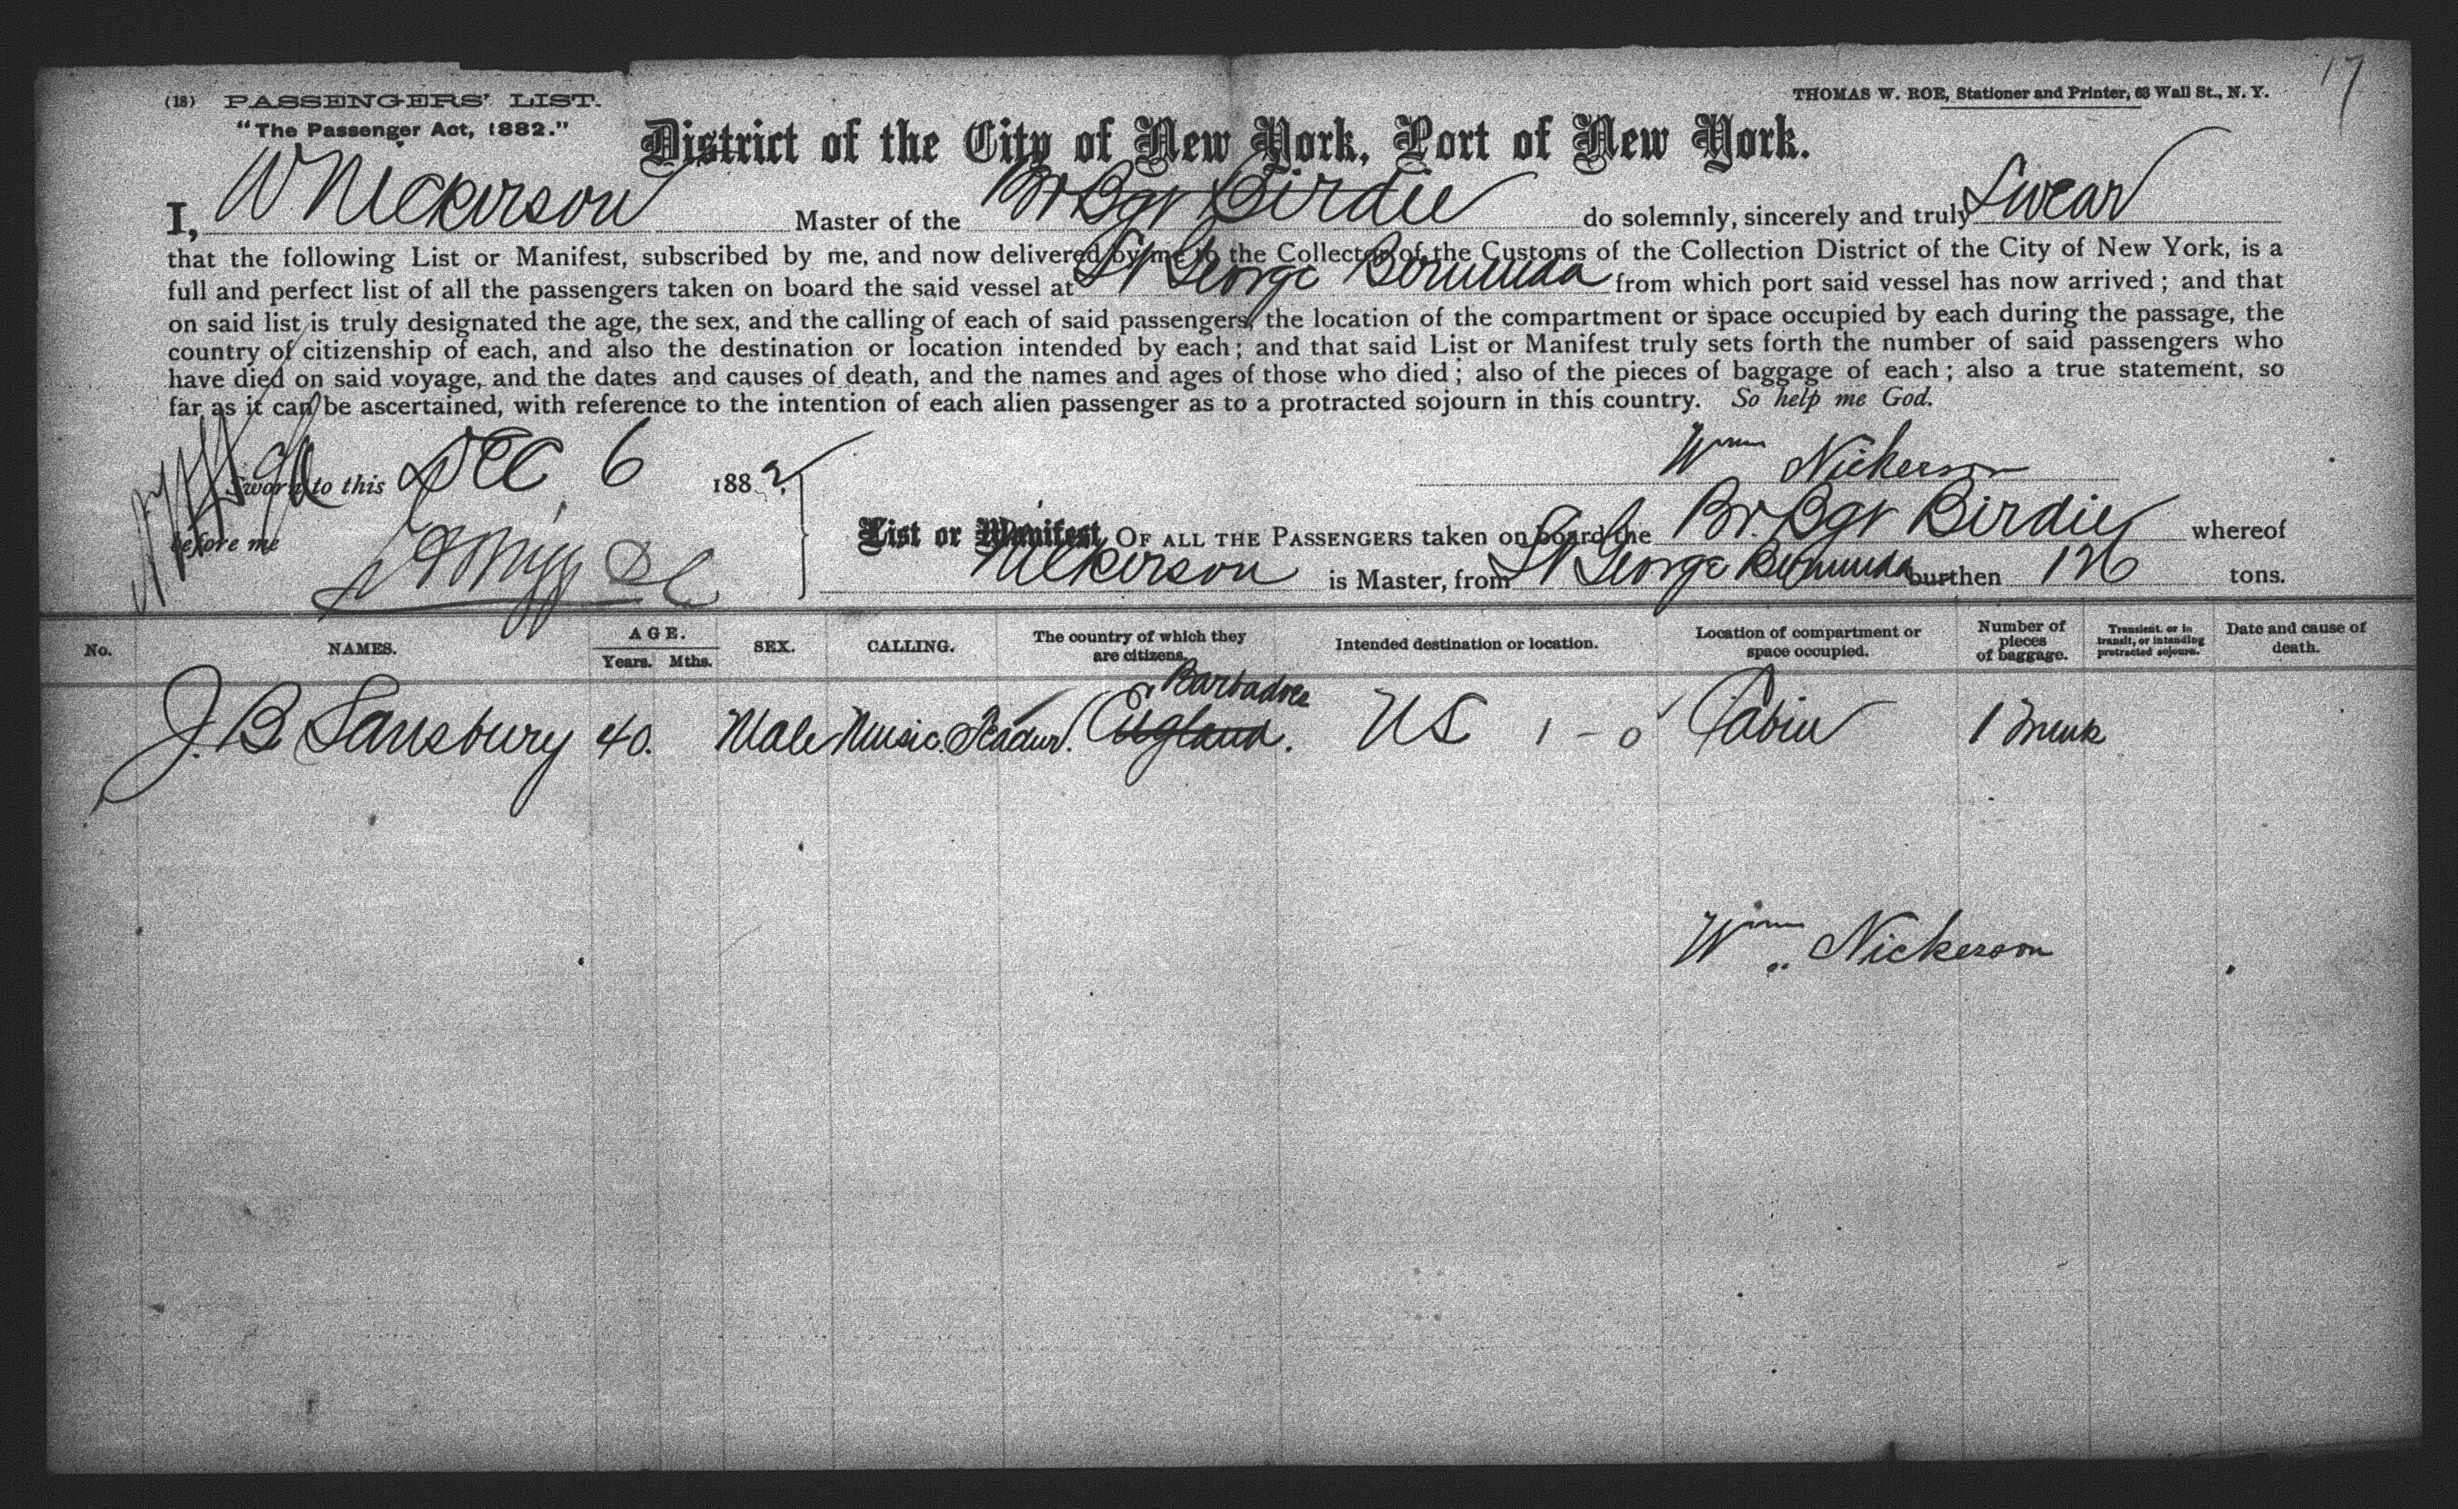 17
(18) PASSENGERS' LIST. THOMAS W. ROE, Stationer and Printer, 63 Wall St., N. Y.
"The Passenger Act, 1882."
District of the City of New York, Port of New York.
I, W Nickerson Master of the Br Bgt Birdie do solemnly, sincerely and truly Swear
that the following List or Manifest, subscribed by me, and now delivered by me to the Collector of the Customs of the Collection District of the City of New York, is a
full and perfect list of all the passengers taken on board the said vessel at St George Bermuda from which port said vessel has now arrived; and that
on said list is truly designated the age, the sex, and the calling of each of said passengers, the location of the compartment or space occupied by each during the passage, the
country of citizenship of each, and also the destination or location intended by each; and that said List or Manifest truly sets forth the number of said passengers who
have died on said voyage, and the dates and causes of death, and the names and ages of those who died; also of the pieces of baggage of each; also a true statement, so
far as it can be ascertained, with reference to the intention of each alien passenger as to a protracted sojourn in this country. So help me God.
Sworn to this Dec 6 1882 Wm Nickerson
before me D C
List or Manifest OF ALL THE PASSENGERS taken on board the Br. Bgt Birdie whereof
Nickerson is Master, from St George Bermuda burthen 126 tons.
No. NAMES. AGE. Years. Mths. SEX. CALLING. The country of which they are citizens. Intended destination or location. Location of compartment or space occupied. Number of pieces of baggage. Transient, or in transit, or intending protracted sojourn. Date and cause of death.
Barbadoes
J. B Sansbury 40. Male Music. England. US 1 - 0 Cabin 1 Trunk
Wm Nickerson